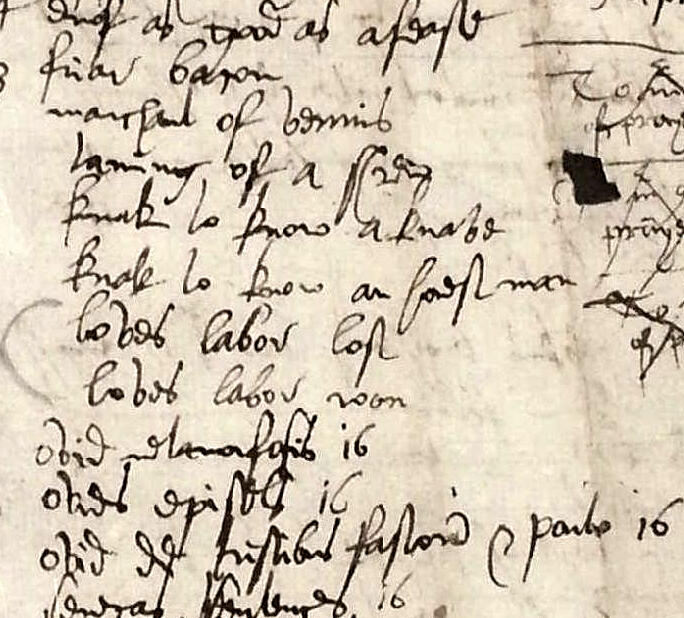 ynuf as good as afeast
friar bacon
marchant of vennis
taming of a shrew
knak to know a knave
knak to know an honest man
loves labor lost
loves labor won
ovid metamorfosis 16
ovides epistels 16
ovid de tristibus fastorū & ponto 16
senecas sentences 16